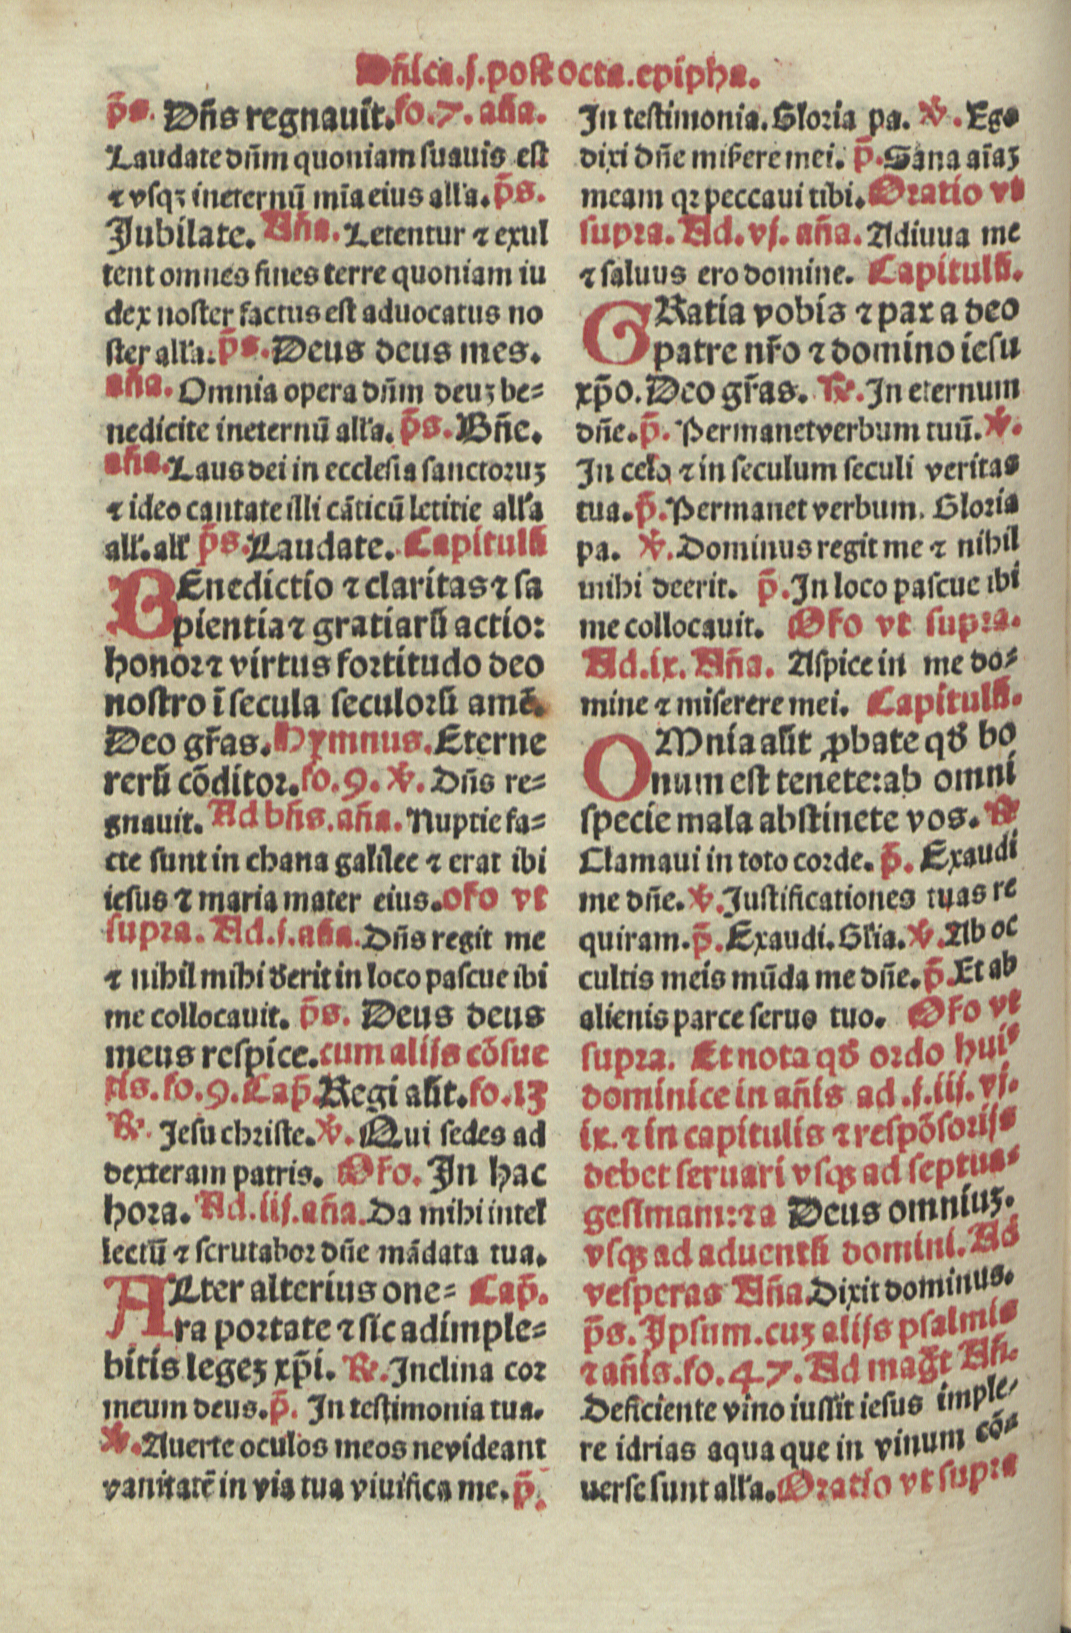 Dñica.j.post octa.epipha.
p̄s. Dñs regnauit.fo.7.aña.
Laudate dñm quoniam suauis est
⁊ vsqꝫ ineternū mīa eius alľa.p̄s.
Jubilate. Aña. Letentur ⁊ exul
tent omnes fines terre quoniam iu
dex noster factus est aduocatus no
ster alľa.p̄s. Deus deus mes.
aña. Omnia opera dñm deuꝫ be-
nedicite ineternū alľa. p̄s. Bñe.
aña. Laus dei in ecclesia sanctoruꝫ
⁊ ideo cantate illi cāticū letitie alľa
alľ.alľ p̄s. Laudate. Capitulū
BEnedictio ⁊ claritas ⁊ sa
pientia ⁊ gratiarū actio:
honor ⁊ virtus fortitudo deo
nostro ī secula seculorū amē.
Deo gr̄as. Hymnus. Eterne
rerū cōditor. fo.9. ℣. Dñs re-
gnauit. Ad bñs.aña. Nuptie fa-
cte sunt in chana galilee ⁊ erat ibi
iesus ⁊ maria mater eius. oř̄o vt
supra. Ad.j.aña. Dñs regit me
⁊ nihil mihi đerit in loco pascue ibi
me collocauit. p̄s. Deus deus
meus respice. cum alijs cōsue
tis.fo.9. Cap̄. Regi aūt.fo.13
℟. Jesu christe. ℣. Qui sedes ad
dexteram patris. Oř̄o. In hac
hora. Ad.iij.aña. Da mihi intel
lectū ⁊ scrutabor dñe mādata tua.
ALter alterius one- Cap̄.
ra portate ⁊ sic adimple-
bitis legeꝫ xp̄i. ℟. Inclina cor
meum deus.p̄. In testimonia tua.
℣. Auerte oculos meos ne videant
vanitatē in via tua viuifica me.p̄.
In testimonia. Gloria pa. ℣. Ego
dixi dñe miserere mei. p̄. Sana aīaꝫ
meam qꝛ peccaui tibi. Oratio vt
supra. Ad.vj.aña. Adiuua me
⁊ saluus ero domine. Capitulū.
GRatia vobis ⁊ pax a deo
patre nr̄o ⁊ domino iesu
xp̄o. Deo gr̄as. ℟. In eternum
dñe.p̄. Permanet verbum tuū. ℣.
In celo ⁊ in seculum seculi veritas
tua.p̄. Permanet verbum. Gloria
pa. ℣. Dominus regit me ⁊ nihil
mihi deerit. p̄. In loco pascue ibi
me collocauit. Oř̄o vt supra.
Ad.ix. Aña. Aspice in me do-
mine ⁊ miserere mei. Capitulū.
OMnia aūt ꝓbate qđ bo
num est tenete: ab omni
specie mala abstinete vos. ℟
Clamaui in toto corde. p̄. Exaudi
me dñe. ℣. Justificationes tuas re
quiram.p̄. Exaudi. Gľia. ℣. Ab oc
cultis meis mūda me dñe.p̄. Et ab
alienis parce seruo tuo. Oř̄o vt
supra. Et nota qđ ordo huiꝰ
dominice in añis ad.j.iij.vj.
ix. ⁊ in capitulis ⁊ respōsorijs
debet seruari vsqꝫ ad septua-
gesimam: ⁊ a Deus omniuꝫ.
vsqꝫ ad aduentū domini. Ad
vesperas Aña Dixit dominus.
p̄s. Ipsum. cuꝫ alijs psalmis
⁊ añis.fo.47. Ad mag̃t Añ.
Deficiente vino iussit iesus imple-
re idrias aqua que in vinum cō-
uerse sunt alľa. Oratio vt supra